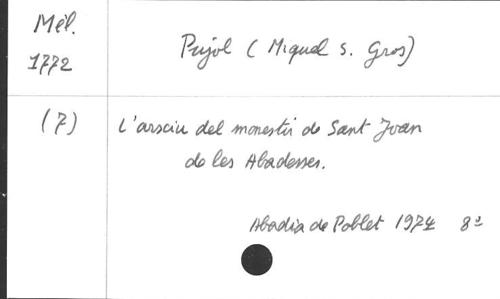 Mél.
1772
Pujol (Miquel S. Gros)
(7)
L'arxiu del monestir de Sant Joan
de les Abadesses.
Abadia de Poblet 1974 8º